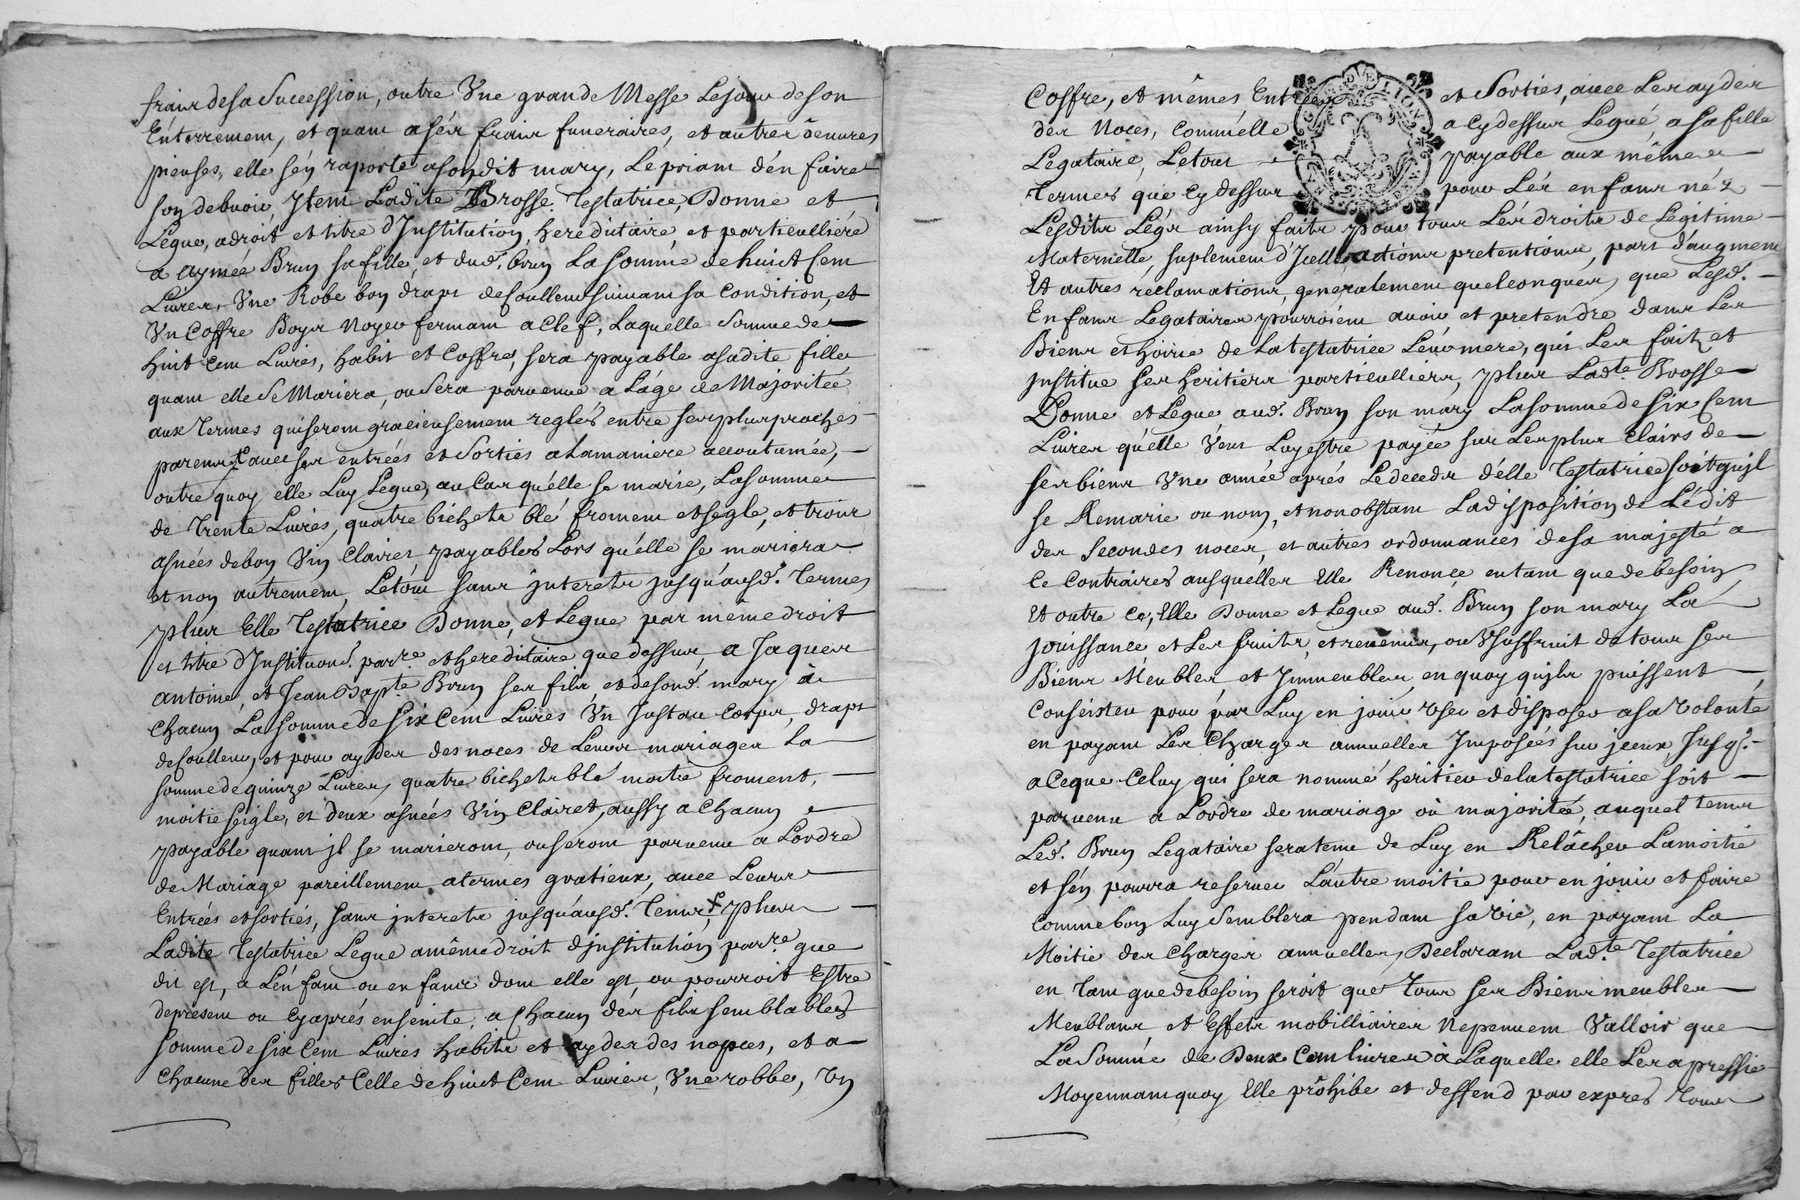 fraix de sa Succession, outre Une grande Messe Le jour de son
Enterrement, et quant a sés fraix funeraires, et autres oeuvres
pieuses, elle sén raporte a son dit mary, Le priant dén faire
son debvoir, Jtem Ladite Brosse Testatrice, Donne et
Legue, a droit et titre d'Institution, hereditaire, et particulliére
a Aymée Brun sa fille, et dud. brun La somme de huict Cent
Livres, Une Robe bon drapt de coulleur suivant sa Condition, et
Un Coffre Boys Noyer fermant a Clef, Laquelle Somme de
huit Cent Livres, habit et Coffre, sera payable a sadite fille
quant elle Se Mariera, ou Sera parvenue a Láge de Majoritée
aux Termes qui seront gracieusement reglés entre ses plus proches
parents avec ses entrées et Sorties a La maniere accoutumée,
outre quoy elle Luy Legue, au Cas quélle se marie, La somme
de Trente Livres, quatre bichets blé froment et segle, et trois
asnées de bon Vin Clairet payables Lors quélle se mariera
et non autrement, Letout sans interets jusquáusd. Termes
plus Elle Testatrice Donne, et Legue par même droit
et titre d'Institution parre. et hereditaire que dessus, a Jaques
Antoine, et Jean Bapte. Brun ses fils, et de sond. mary à
Chacun La somme de Six Cent Livres Un Justau Corps, drapt
de coulleur, et pour ayder des noces de Leurs mariages La
somme de quinze Livres, quatre bichets blé moitie froment,
moitie seigle, et deux asnées Vin Clairet, aussy a Chacun
payable quant jl se marieront, ou seront parvenu a Lordre
de Mariage pareillement a termes gratieux, avec Leurs
Entrées et sorties, sans interets jusquáusd. Termes, plus
Ladite Testatrice Legue a même droit d'institution parre. que
dit est, a Lénfant ou enfants dont elle est, ou pourroit Estre
de present ou Cy aprés enseinte, a Chacun dés fils semblables
somme de six Cent Livres habits et ayder des nopces, et a
Chacune des filles Celle de huict Cent Livres, Une robbe, Un
Coffre, et mêmes Entrées et Sorties, avec Les ayder
des Noces, Comme elle a Cy dessus Legué, a sa fille
Legataire, Letout payable aux mêmes
Termes que Cy dessus pour Lés enfans néz
Lesdits Légs ainsy faits pour tous Lés droits de Legitime
Maternelle, suplement d'Jcelle actions pretentions, part d'augment
Et autres reclamations, generalement quelconques, que Lesd.
Enfans Legataires pourroient avoir et pretendre dans Les
Biens et hoirie de La testatrice Leur mere, qui Les fait et
institue ses heritiers particulliers, plus Ladte. Brosse
Donne et Legue aud. Brun son mary La somme de Six Cent
Livres quélle Veut Luy estre payée sur Les plus Clairs de
ses biens Une année aprés Le deceds d'elle Testatrice soit quíl
se Remarie ou non, et nonobstant La disposition de L'édit
des Secondes noces, et autres ordonnances de sa majesté a
Ce Contraires ausquelles Elle Renonce entant que de besoin
Et outre Ce, Elle Donne et Legue aud. Brun son mary La
jouissance et Les fruits, et revenus, ou Usufruit de tous Ses
Biens Meubles et Jmmeubles, en quoy quils puissent
Consister pour par Luy en jouir User et disposer a sa Volonté
en payant Les Charges annuelles Imposées sur jceux, Jusq.
a Ce que Celuy qui sera nommé heritier de La testatrice soit
parvenu a Lordre de mariage où majorité, auquel temps
Led. Brun Legataire sera tenu de Luy en Relâcher La moitié
et sén pourra reserver Láutre moitie pour en jouir et faire
Comme bon Luy Semblera pendant sa Vie, en payant La
Moitie des Charges annuelles, Declarant Ladte. Testatrice
en Tant que de besoin seroit que Tous Ses Biens meubles
Meublans et Effets mobilliaires Nepeuvent Valloir que
La Somme de Deux Cent livres à Laquelle elle Les a pressie
Moyennant quoy Elle prohibe et deffend par exprés Tous